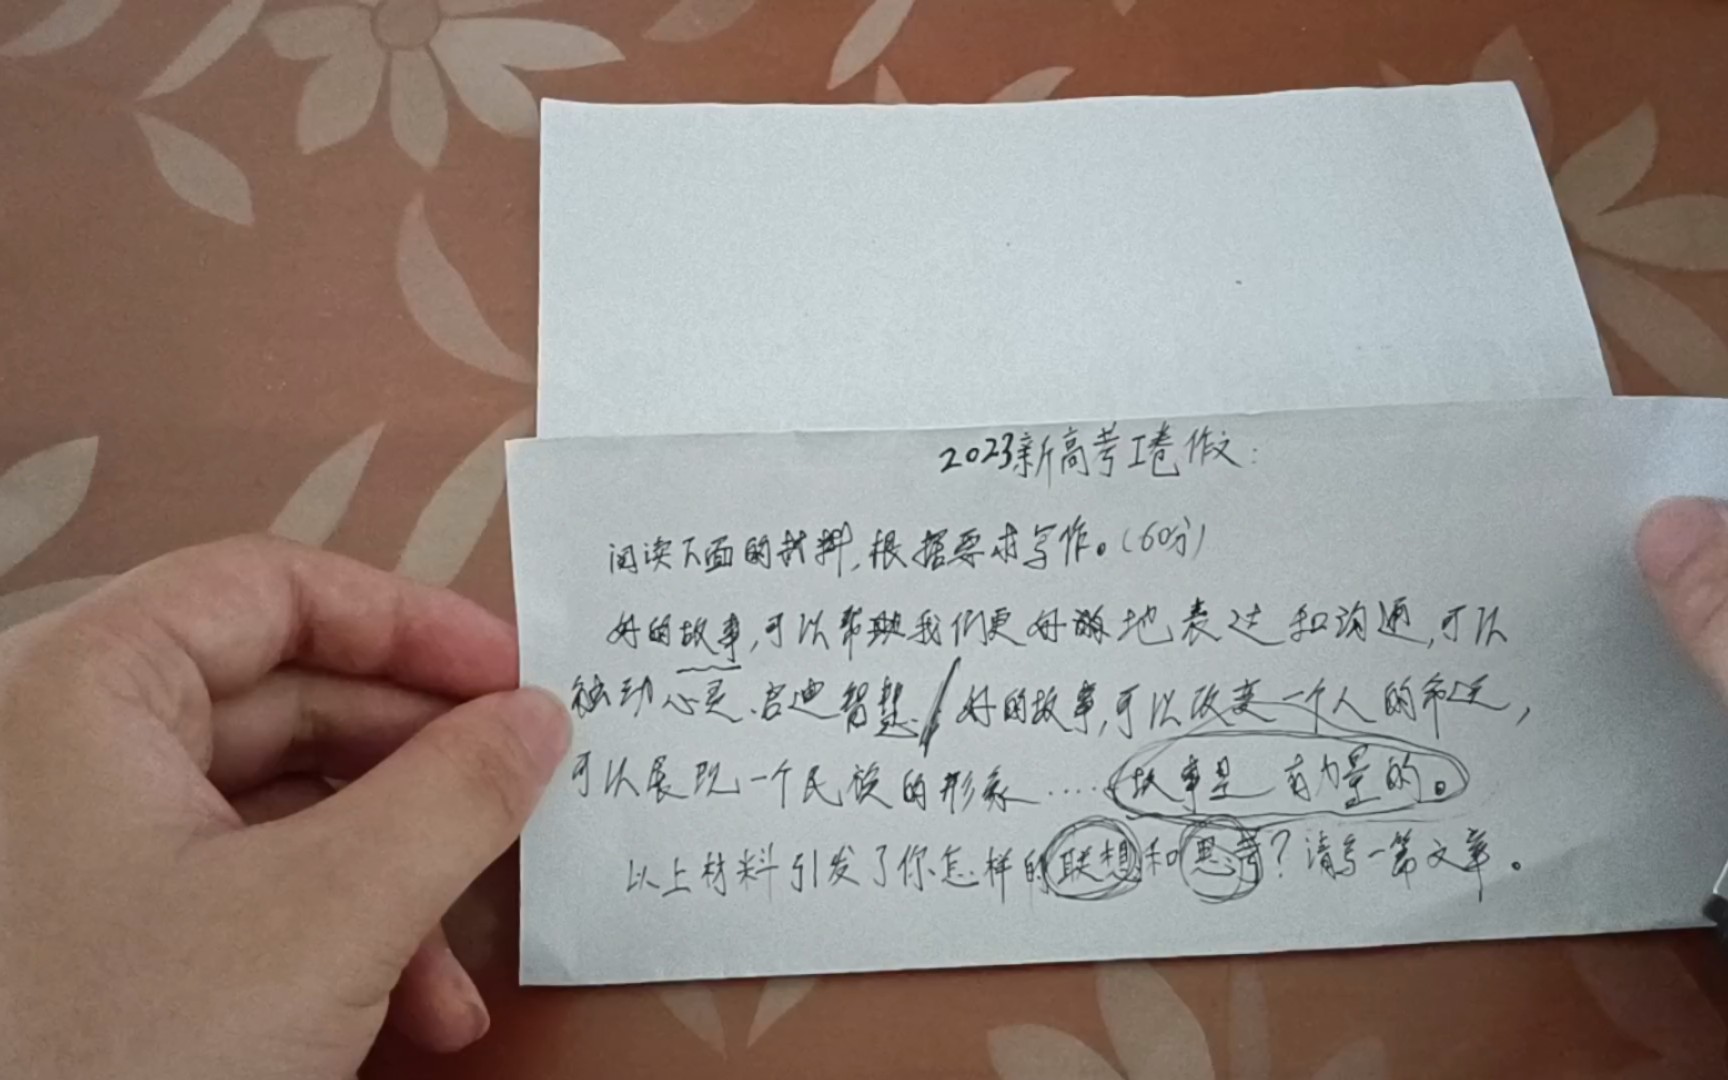 2023新高考I卷作文：
阅读下面的材料，根据要求写作。（60分）
好的故事，可以帮助我们更好地表达和沟通，可以
触动心灵、启迪智慧；好的故事，可以改变一个人的命运，
可以展现一个民族的形象……故事是有力量的。
以上材料引发了你怎样的联想和思考？请写一篇文章。